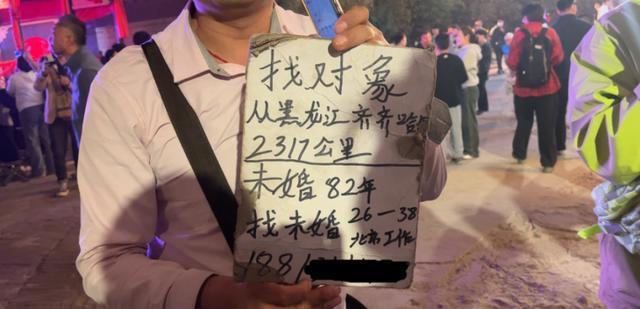 找对象
从黑龙江齐齐哈尔
2317公里
未婚82年
找未婚26-38
北京工作
188